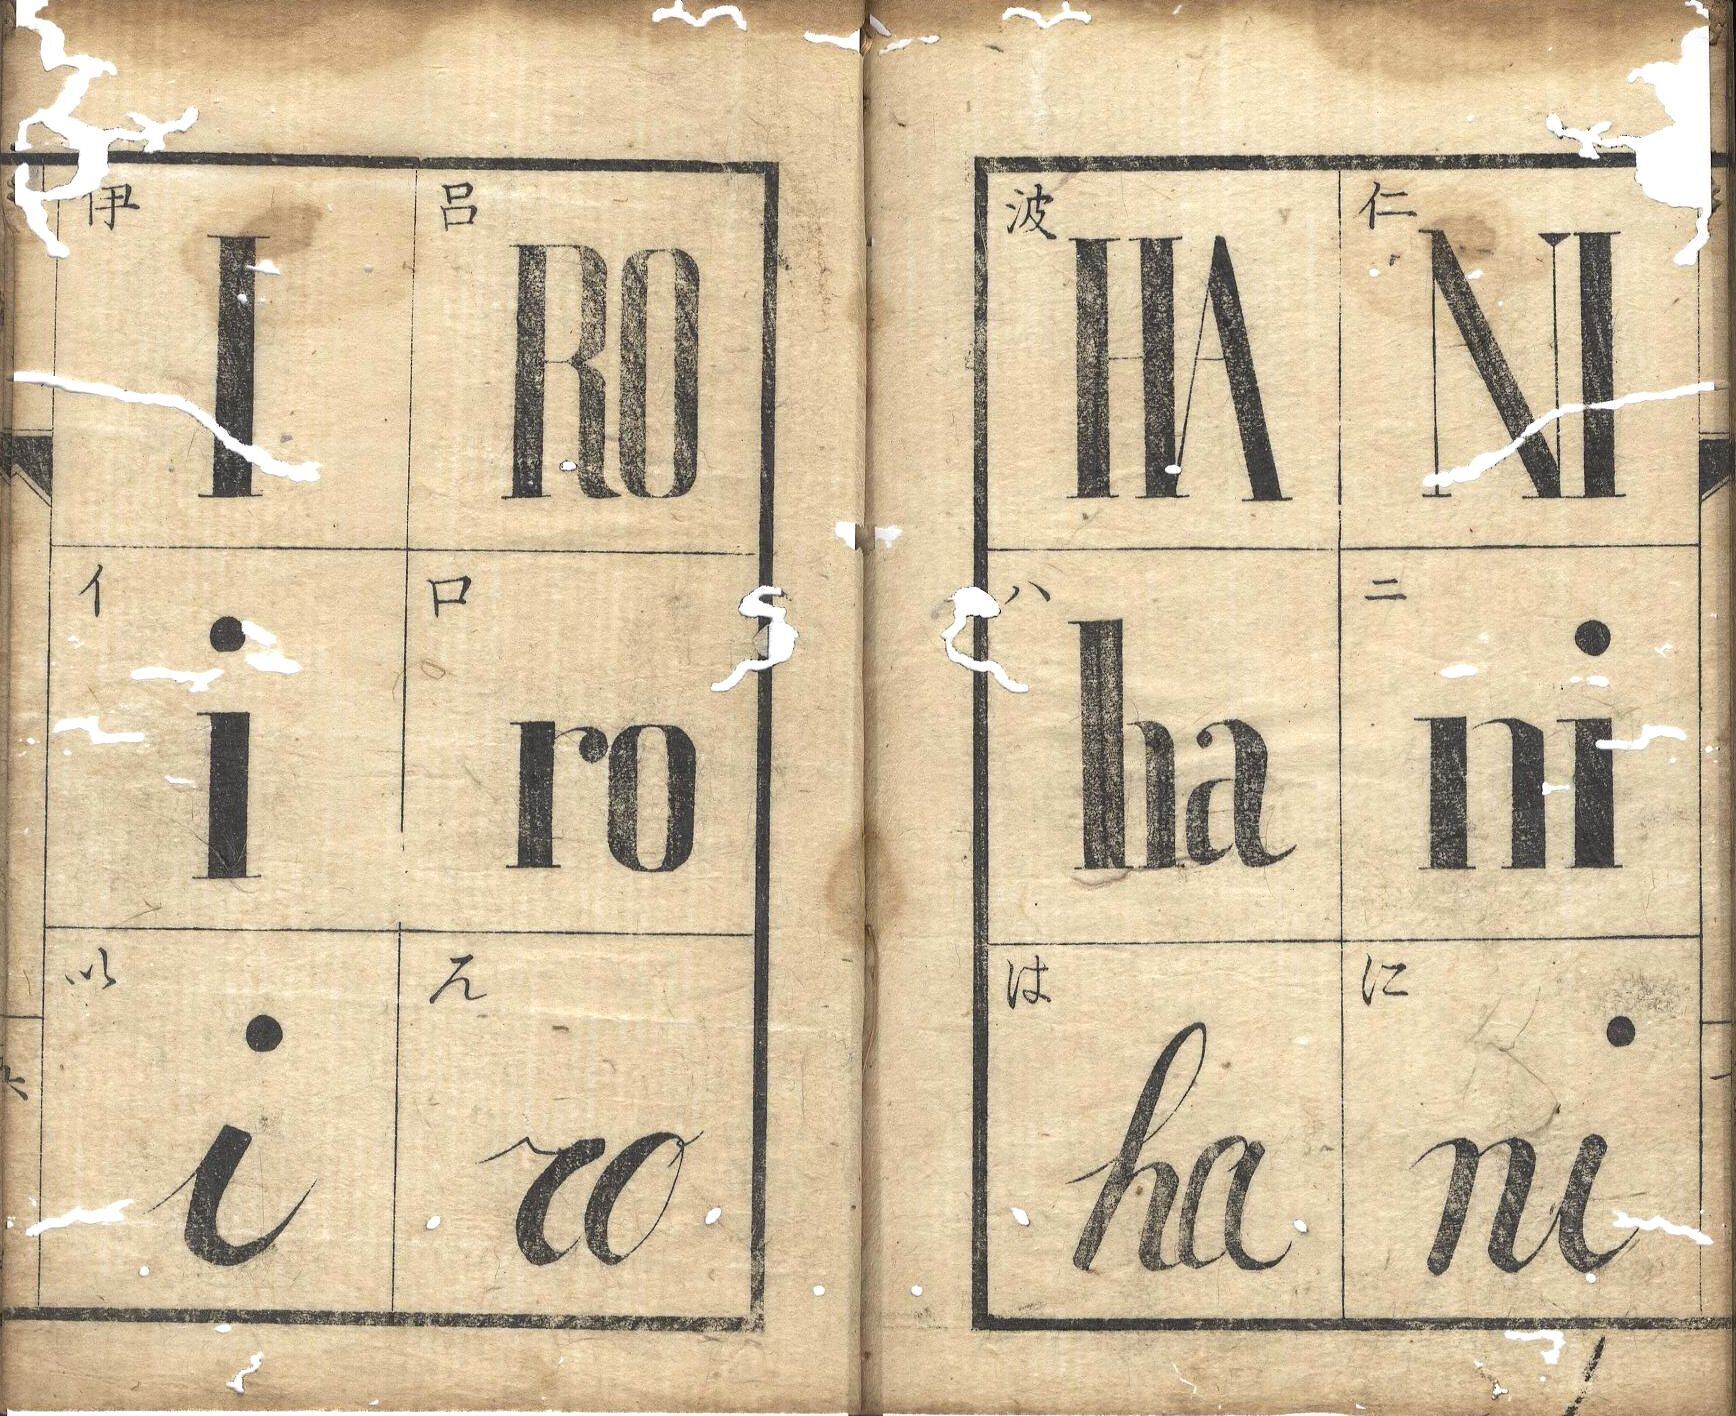 伊 呂
I RO
イ ロ
i ro
い ろ
i ro
波 仁
HA NI
ハ ニ
ha ni
は に
ha ni